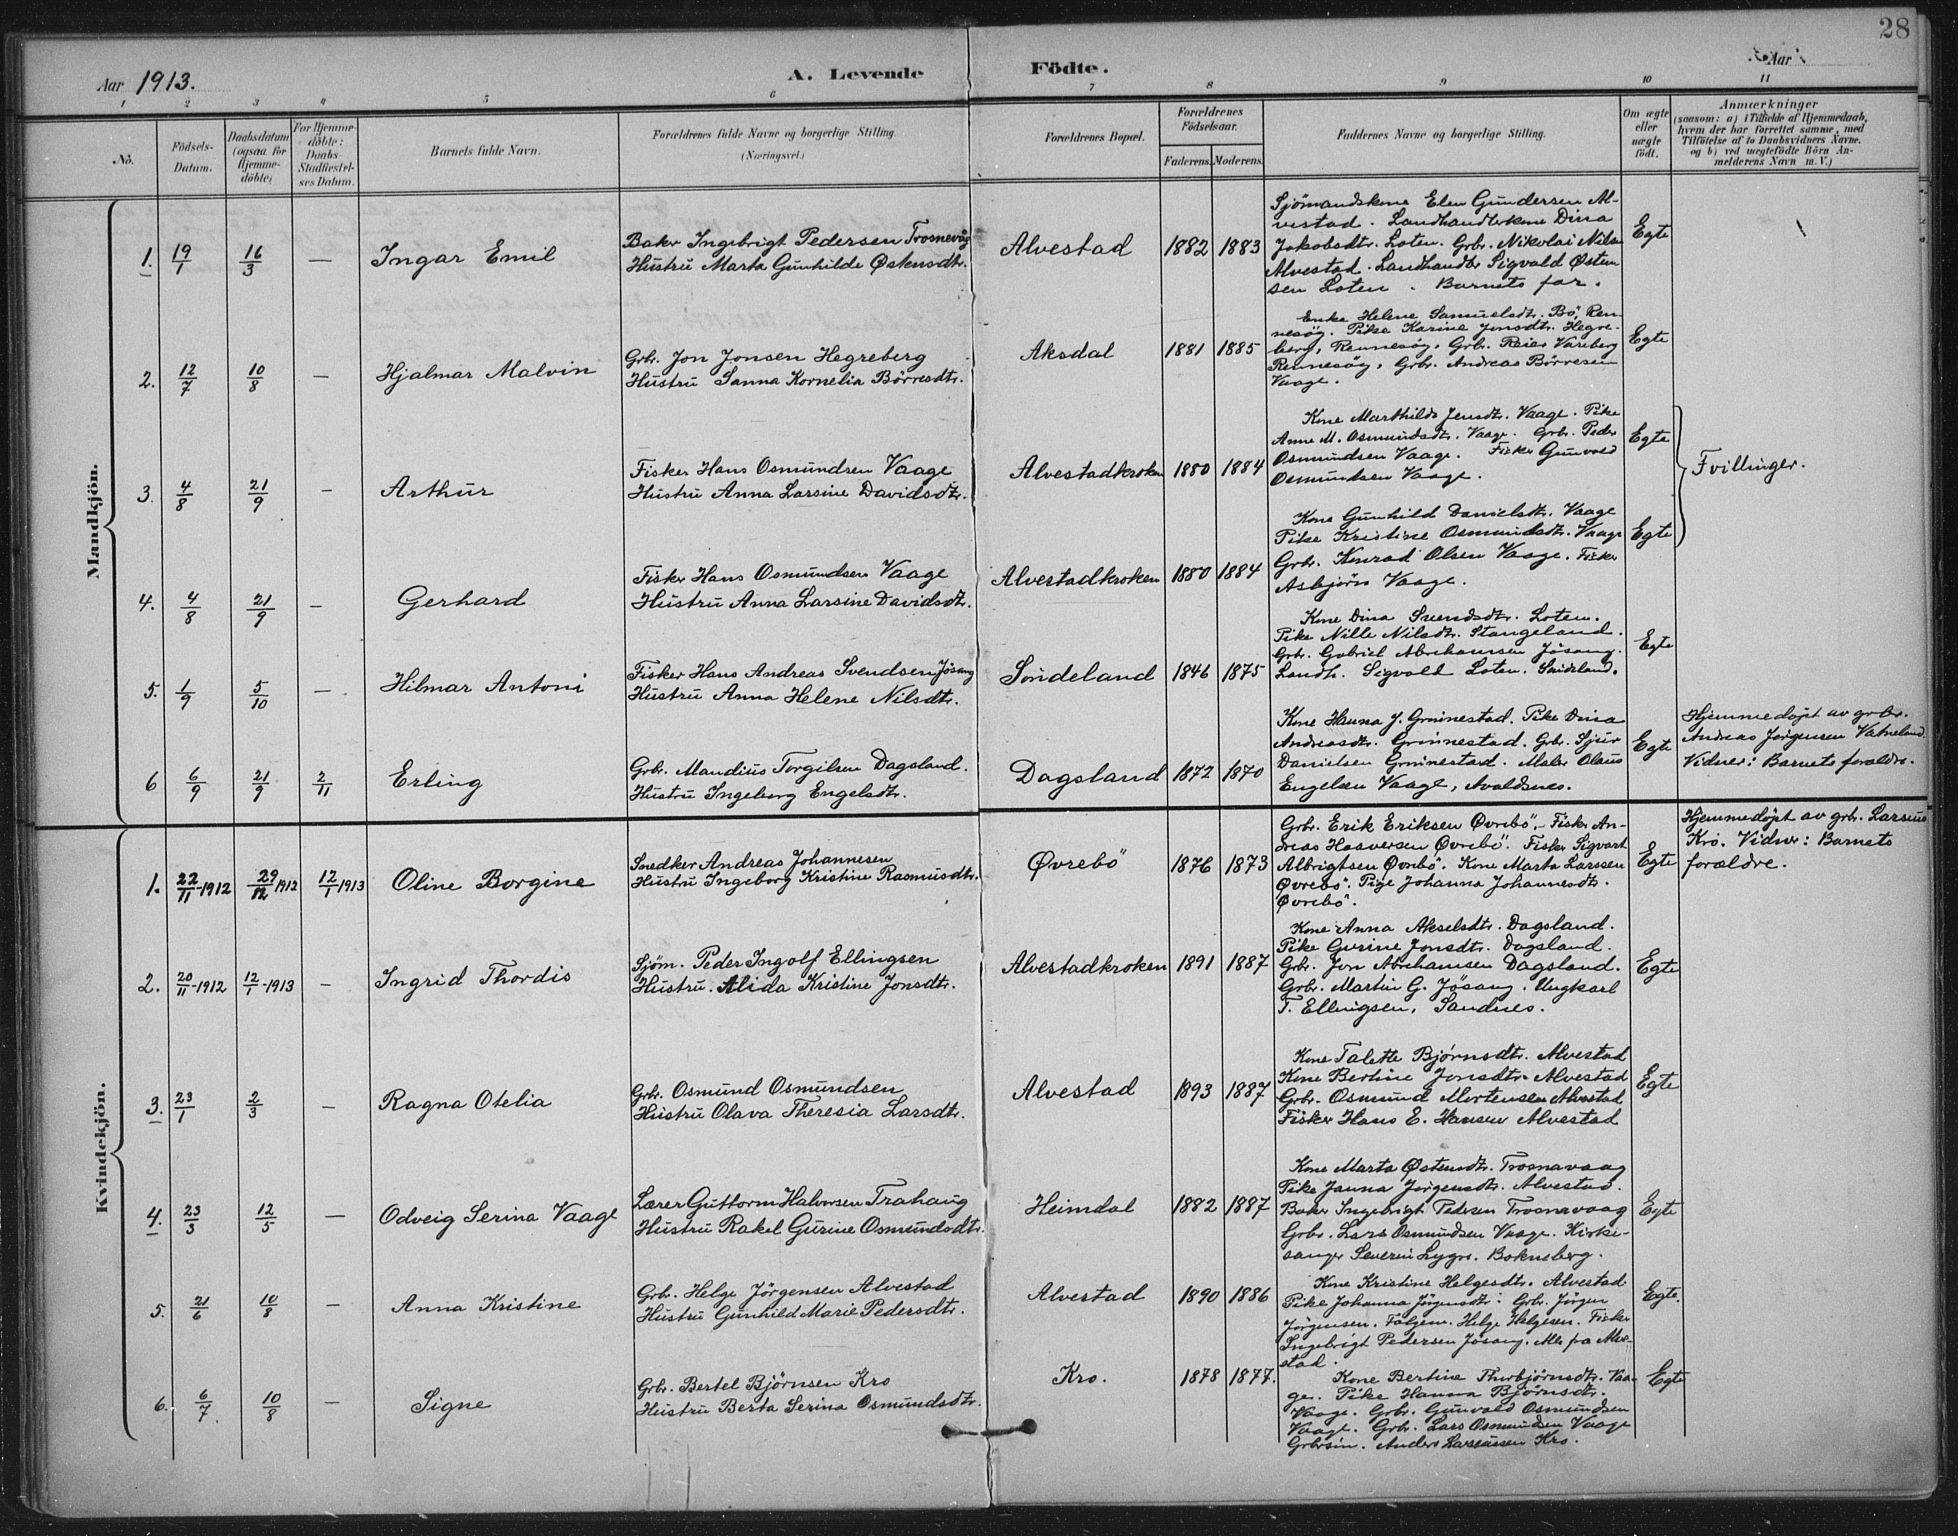 28
Aar 1913.
A. Levende Födte.
Aar
1 2 3 4 5 6 7 8 9 10 11
No.
Födsels-Datum.
Daabsdatum (ogsaa for Hjemme-döbte)
For Hjemme-döbte: Daabs-Stadfæstel-ses Datum.
Barnets fulde Navn.
Forældrenes fulde Navne og borgerlige Stilling. (Næringsvei.)
Forældrenes Bopæl.
Forældrenes Födselsaar.
Faderens. Moderens.
Faddernes Navne og borgerlige Stilling.
Om ægte eller uægte födt.
Anmærkninger
(saasom: a) i Tilfælde af Hjemmedaab,
hvem der har forrettet samme, med
Tilföielse af to Daabsvidners Navne.
og b) ved uægtefödte Börn An-
melderens Navn m. V.)
Mandkjön.
1. 19/1 16/3 — Ingar Emil
Baker Ingebrigt Pedersen Trosnevåg
Hustru Marta Gunhilde Østensdtr.
Alvestad 1882 1883
Sjömandskone Elen Gundersen Al-
vestad. Landhandlerkone Dina
Jakobsdtr. Loten. Grbr. Nikolai Nilsen
Alvestad. Landhandler Sigvald Østen
sen Loten. Barnets far.
Egte
2. 12/7 10/8 — Hjalmar Malvin
Grb. Jon Jonsen Hegreberg
Hustru Sanna Kornelia Börresdtr.
Aksdal 1881 1885
Enke Helene Samuelsdtr. Bö, Ren-
nesöy. Pike Karine Jonsdtr. Hegre-
berg, Rennesöy. Grb. Reier Vaaberg
Rennesöy, Grbr. Andreas Börresen
Vaage.
Egte
3. 4/8 21/9 — Arthur
Fisker Hans Osmundsen Vaage
Hustru Anna Larsine Davidsdtr.
Alvestadkroken 1880 1884
Kone Marthilde Jensdtr. Vaage. Pike
Anne M. Osmundsdtr. Vaage. Grb. Peder
Osmundsen Vaage. Fisker Gunvald
Osmundsen Vaage.
Egte
Tvillinger.
4. 4/8 21/9 — Gerhard
Fisker Hans Osmundsen Vaage
Hustru Anna Larsine Davidsdtr.
Alvestadkroken 1880 1884
Kone Gunhild Danielsdtr. Vaage
Pike Kristine Osmundsdtr. Vaage
Grbr. Konrad Olsen Vaage. Fisker
Asbjørn Vaage.
Egte
5. 1/9 5/10 — Hilmar Antoni
Fisker Hans Andreas Svendsen Jösang
Hustru Anna Helene Nilsdtr.
Sondeland 1846 1875
Kone Dina Svendsdtr. Loten.
Pike Nille Nilsdtr. Stangeland.
Grb. Gabriel Abrahamsen Jösang.
Landh. Sigvald Loten.
Egte
6 6/9 21/9 2/11 Erling
Grb. Mandius Torgilsen Dagsland.
Hustru Ingeborg Engelsdtr.
Dagsland 1872 1870
Kone Hanna J. Grinnestad. Pike Dina
Andreasdtr. Grinnestad. Grb. Sjur
Danielsen Grinnestad. Maler Olaus
Engelsen Vaage, Avaldsnes.
Egte
Hjemmedøpt av grbr.
Andreas Jørgensen Vatneland.
Vidner: Barnets forældre.
Kvindekjön.
1. 22/11-1912 29/12 1912 12/1 1913 Oline Borgine
Snedker Andreas Johannesen
Hustru Ingeborg Kristine Rasmusdtr.
Øvrebö 1876 1873
Grbr. Erik Eriksen Øvrebö, Fisker An-
dreas Hasversen Øvrebö. Fisker Sigvart
Albrigtsen Øvrebö. Kone Marta Larssen
Øvrebö. Pige Johanna Johannesdtr.
Øvrebö.
Egte
Hjemmedøpt av grb. Larsius
Kro. Vidner: Barnets
forældre.
2. 20/11-1912 12/1-1913 — Ingrid Thordis
Sjöm. Peder Ingolf Ellingsen
Hustru. Alida Kristine Jonsdtr.
Alvestadkroken 1891 1887
Kone Anna Akselsdtr. Dagsland.
Pike Gurine Jonsdtr. Dagsland.
Grbr. Jon Abrahamsen Dagsland.
Grbr. Martin G. Jösang. Ungkarl
T. Ellingsen, Sandnes.
Egte
3. 23/1 2/3 — Ragna Otelia
Grb. Osmund Osmundsen
Hustru Olava Theresia Larsdtr.
Alvestad 1893 1887
Kone Talette Bjørnsdtr. Alvestad
Kone Bertine Jonsdtr. Alvestad
Grbr. Osmund Mortensen Alvestad
Fisker Hans E. Hansen Alvestad
Egte
4. 23/3 12/5 — Odveig Serina Vaage
Lærer Guttorm Halvorsen Trahaug
Hustru Rakel Gurine Osmundsdtr.
Heimdal 1882 1887
Kone Marta Østensdtr. Trosnavaag
Pike Janna Jørgensdtr. Alvestad.
Baker Ingebrigt Pedersen Trosnavaag
Grbr. Lars Osmundsen Vaage. Kirke-
sanger Severin Lygre. Bokneberg.
Egte
5. 21/6 10/8 — Anna Kristine
Grb. Helge Jörgensen Alvestad
Hustru Gunhild Marie Pedersdtr.
Alvestad 1890 1886
Kone Kristine Helgesdtr. Alvestad
Pike Johanna Jörgensdtr. Grbr. Jörgen
Jörgensen. Helge Helgesen. Fisker
Ingebrigt Pedersen Jösang. Alle fra Alve-
stad.
Egte.
6. 6/7 10/8 — Signe
Grbr. Bertel Björnsen Kro
Hustru Berta Serina Osmundsdtr.
Kro. 1878 1877.
Kone Bertine Thorbjörnsdtr. Vaa-
ge. Pike Hanna Björnsdtr.
Vaage. Grbr. Gunvald Osmundsen
Vaage. Grbr. Lars Osmundsen Vaage
Grbrsön. Anders Larseusen Kro.
Egte